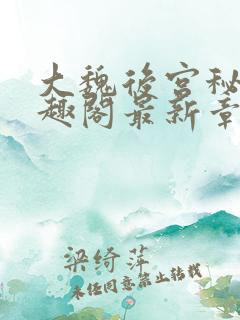 大魏後宫秘
趣阁最新章
梁绮萍
未经同意禁止转载